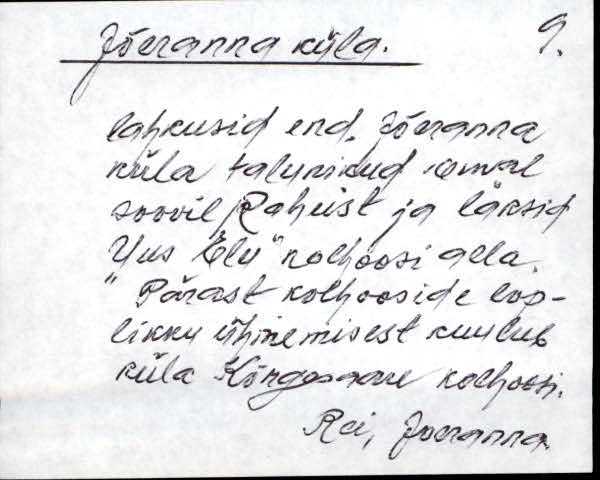 Jõeranna küla.
9.
lahkusid end. Jõeranna
küla talunikud omal
soovil Rahust ja läksid
"Uus Elu" kolhoosi alla.
Pärast kolhooside lõp-
likku ühinemisest kuulub
küla Kõrgessaare kolhoosi.
Rei, Jõeranna.